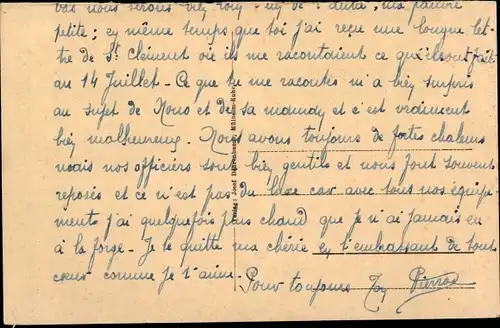 nous serons loin de l'autre, ma pauvre
petite ; en même temps que toi j'ai reçu une longue let-
tre de St Clément où ils me racontaient ce qu'ils ont fait
au 14 Juillet. Ce que tu me racontes m'a bien surpris
au sujet de Nono et de sa maman et c'est vraiment
bien malheureux. Nous avons toujours de fortes chaleurs
mais nos officiers sont bien gentils et nous font souvent
reposés et ce n'est pas du luxe car avec tous nos équipe
ments j'ai quelquefois plus chaud que je n'ai jamais eu
à la forge. Je te quitte ma chérie en t'embrassant de tout
cœur comme je t'aime. Pour toujours Ton Pierrot
Verlag: Josef